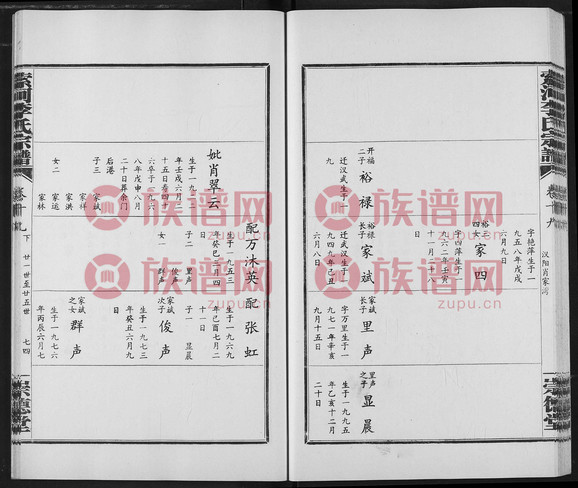 字艳萍生于一
九五八年戊戌
六月九日
裕三
女四
家四
字四萍生于一
九六二年壬寅
十一月二十八
开福
子
裕禄
迁汉武生于一
九
裕禄
长子
家斌
迁武汉生于一
九四九年己丑
六月八日
家斌
长子
里声
字万里生于一
九七一年辛亥
九月十五日
里声
之子
显晨
生于一九九五
年乙亥十二月
二十日
汉阳肖家湾
卷十九
崇德堂
妣肖翠云
生于一九二二
年壬戌六月二
十五日寿四十
六卒于一九六
八年戊申八月
二十日葬余门
后港
子三
家斌
家祥
家洪
女二
家运
家林
配万沐英
生于一九五三
年癸巳二月四
日
子二
里声
俊声
女一
群声
配张虹
生于一九六九
年己酉七月二
十日
子一
显晨
家斌
次子
俊声
生于一九七三
年癸丑六月九
日
家斌
之女
群声
生于一九七六
年丙辰六月七
李氏宗谱
卷十九
下
廿一世至廿五世
七四
崇德堂
族谱网
zupu.cn